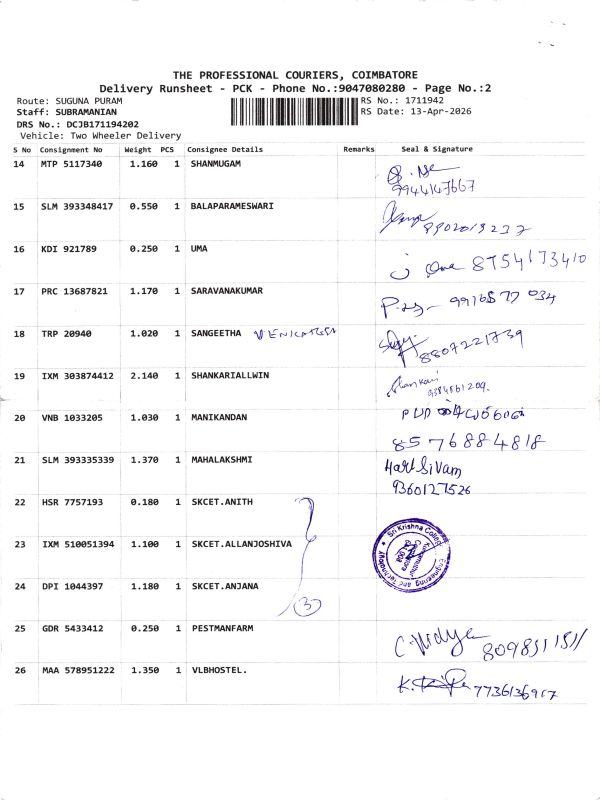 THE PROFESSIONAL COURIERS, COIMBATORE
Delivery Runsheet - PCK - Phone No.:9047080280 - Page No.:2
Route: SUGUNA PURAM
RS No.: 1711942
Staff: SUBRAMANIAN
RS Date: 13-Apr-2026
DRS No.: DCJB171194202
Vehicle: Two Wheeler Delivery
S No Consignment No Weight PCS Consignee Details Remarks Seal & Signature
14 MTP 5117340 1.160 1 SHANMUGAM
9944147667
15 SLM 393348417 0.550 1 BALAPARAMESWARI
8902019237
16 KDI 921789 0.250 1 UMA
8754173410
17 PRC 13687821 1.170 1 SARAVANAKUMAR
18 TRP 20940 1.020 1 SANGEETHA
8807221739
19 IXM 303874412 2.140 1 SHANKARIALLWIN
Shankari
20 VNB 1033205 1.030 1 MANIKANDAN
8576884818
21 SLM 393335339 1.370 1 MAHALAKSHMI
HariSivam
9360127526
22 HSR 7757193 0.180 1 SKCET.ANITH
23 IXM 510051394 1.100 1 SKCET.ALLANJOSHIVA
Sri Krishna College
Engineering and Technology
24 DPI 1044397 1.180 1 SKCET.ANJANA
3
25 GDR 5433412 0.250 1 PESTMANFARM
26 MAA 578951222 1.350 1 VLBHOSTEL.
7736136917